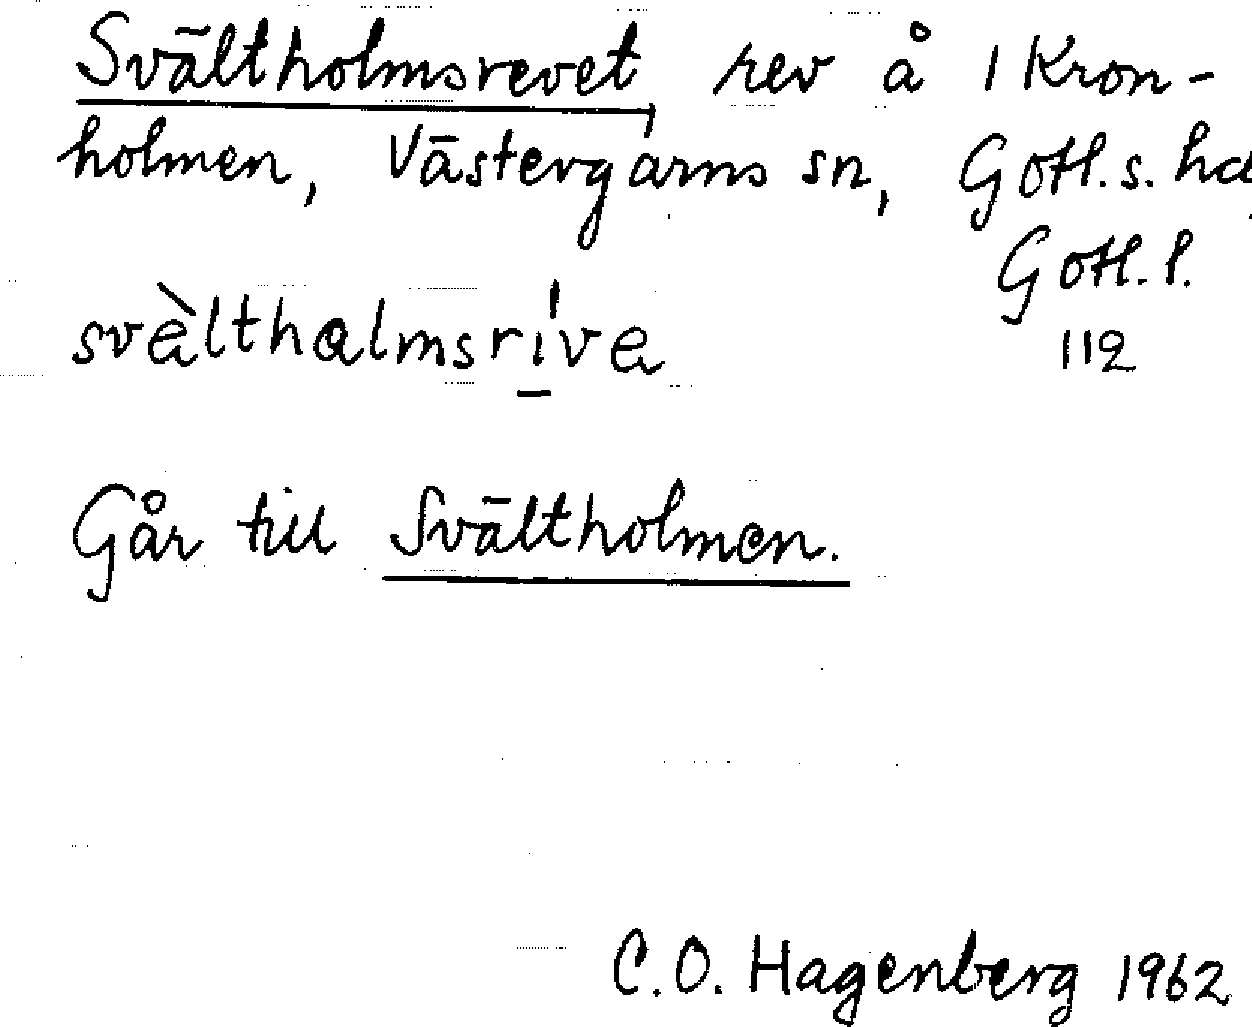 Svältholmsrevet, rev å 1 Kron-
holmen, Västergarns sn, Gotl. s. hd
Gotl. l.
svàlthalmsríve
112
Går till Svältholmen.
C. O. Hagenberg 1962